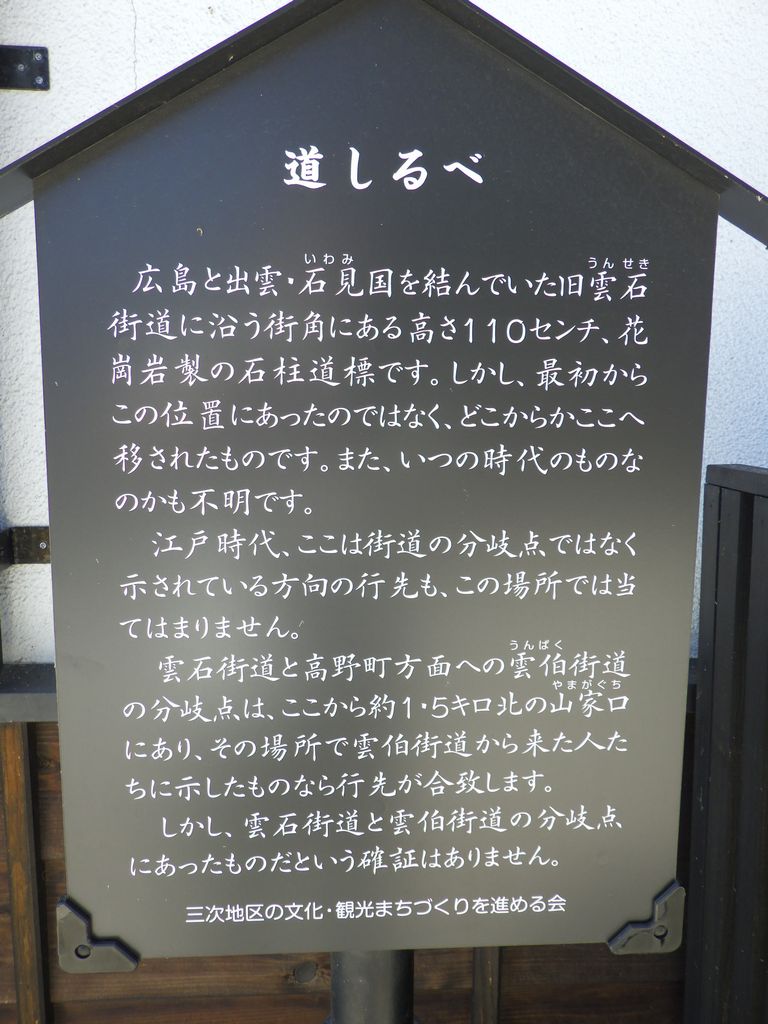 道しるべ
広島と出雲・石見国を結んでいた旧雲石
いわみ
うんせき
街道に沿う街角にある高さ110センチ、花
崗岩製の石柱道標です。しかし、最初から
この位置にあったのではなく、どこからかここへ
移されたものです。また、いつの時代のものな
のかも不明です。
江戸時代、ここは街道の分岐点ではなく
示されている方向の行先も、この場所では当
てはまりません。
雲石街道と高野町方面への雲伯街道
うんぱく
の分岐点は、ここから約1・5キロ北の山家口
やまがぐち
にあり、その場所で雲伯街道から来た人た
ちに示したものなら行先が合致します。
しかし、雲石街道と雲伯街道の分岐点
にあったものだという確証はありません。
三次地区の文化・観光まちづくりを進める会